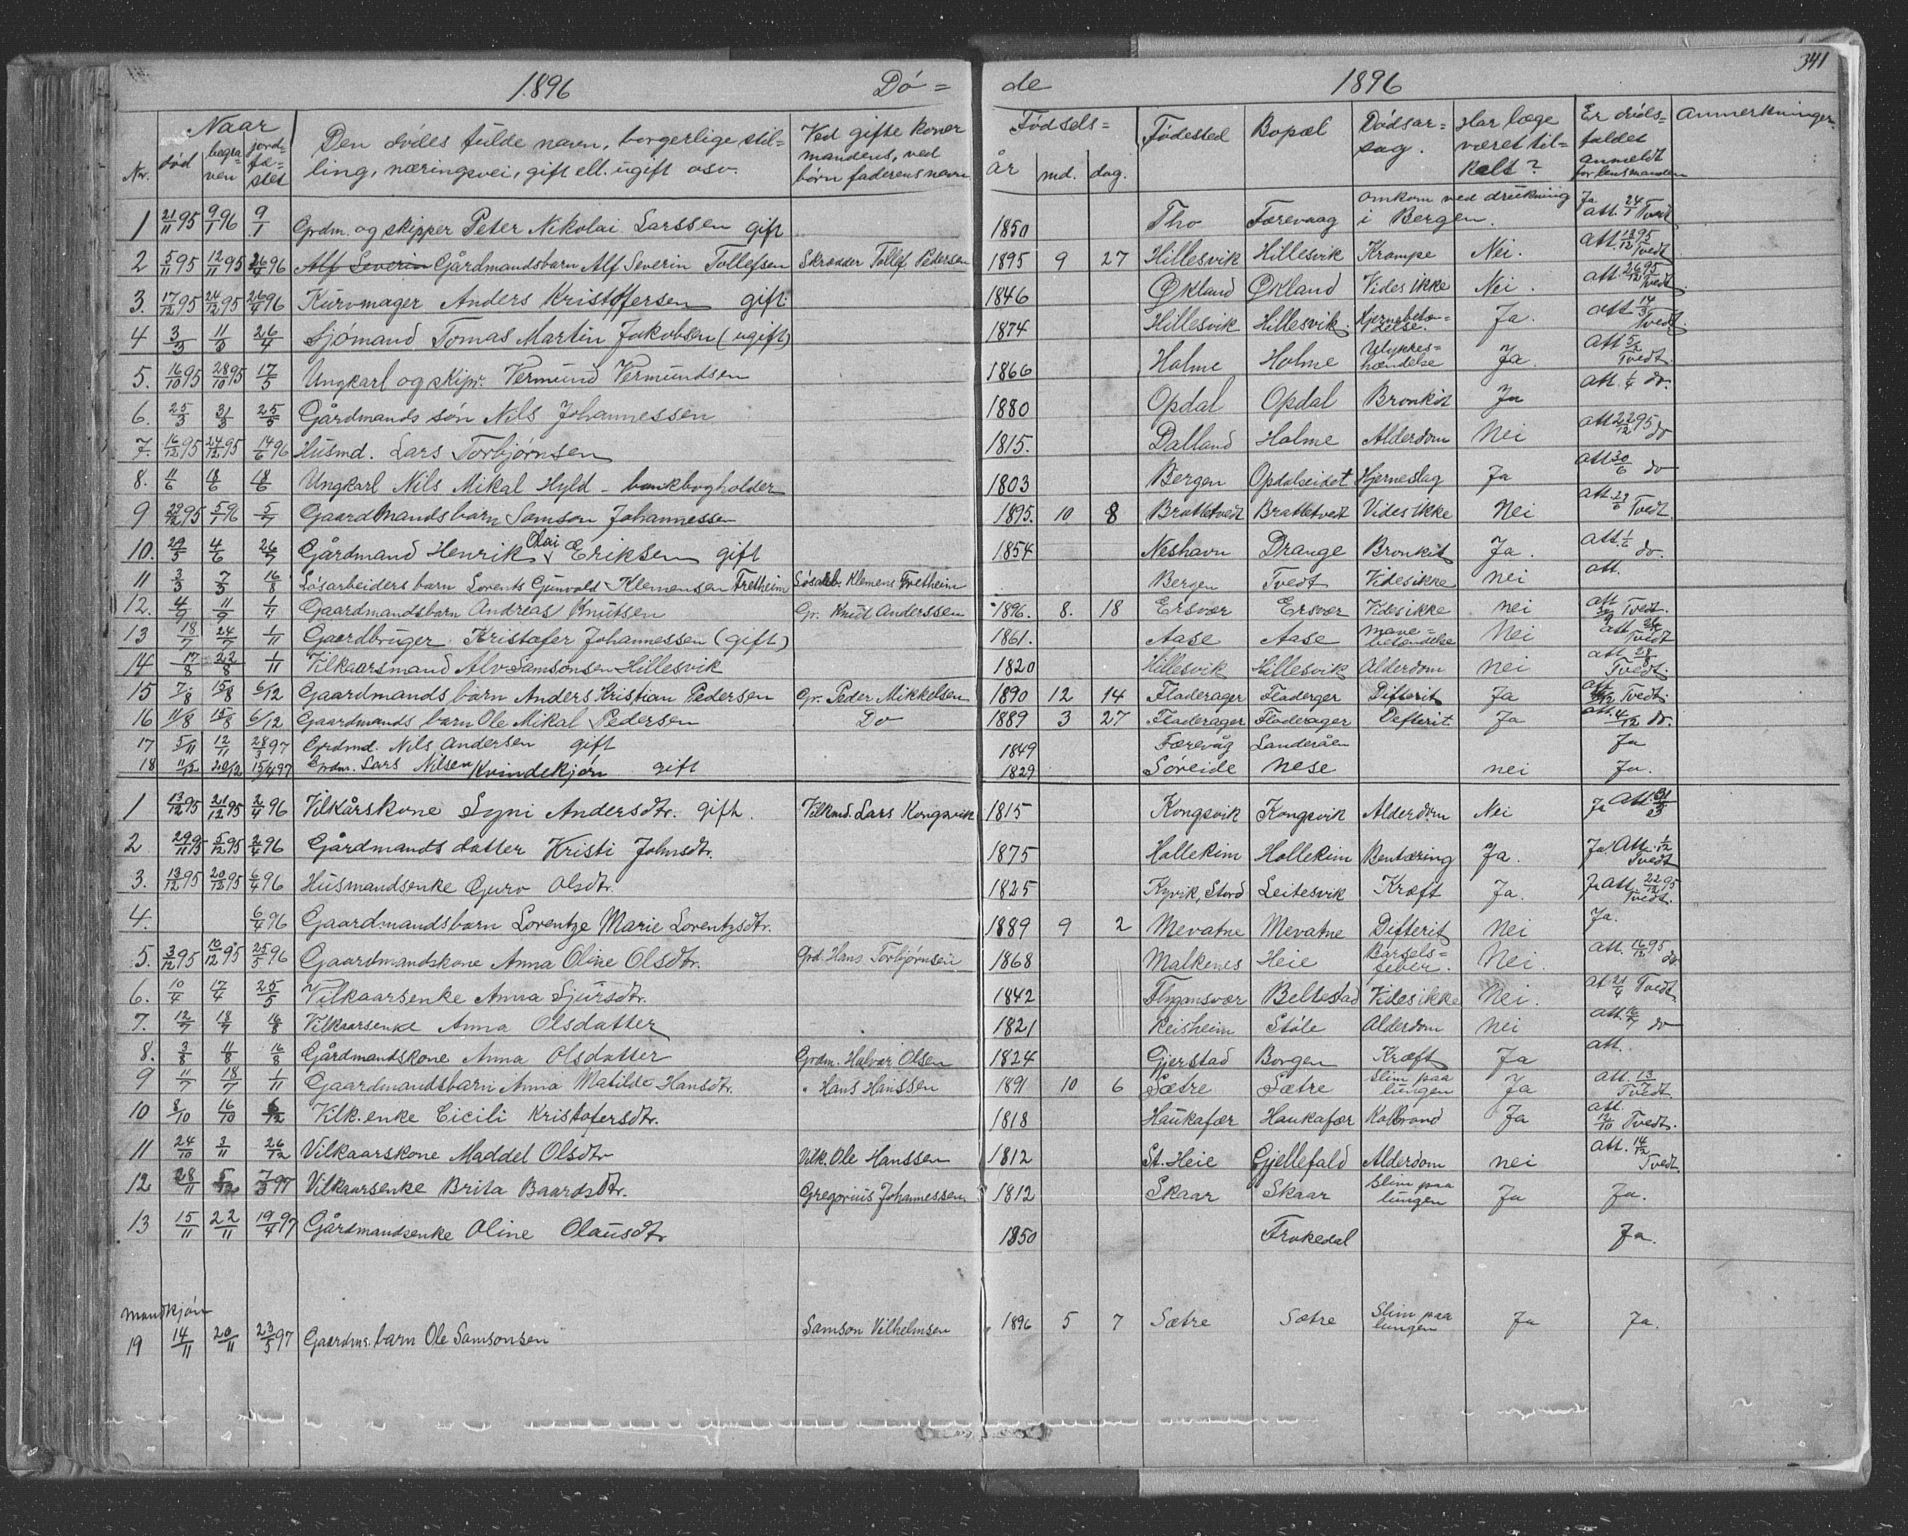 1896 Dø= de 1896 341
Nr. Naar død begraven jordfæstet Den dødes fulde navn, borgerlige stilling, næringsvei, gift ell. ugift osv. Ved gifte koner mandens, ved børn faderens navn Fødsels= år md. dag. Fødested Bopæl Dødsarsag. Har læge været tilkalt? Er dødsfaldet anmeldt for lensmanden Anmerkninger
1 21/11 95 9/1 96 9/1 Grdm. og skipper Peter Nikolai Larssen gift 1850 Tho Færevaag omkom ved drukning i Bergen. Ja att. 24/1 Tvedt
2 5/11 95 12/11 95 26/4 96 Alf Severin Gårdmandsbarn Alf Severin Tollefsen Skrædder Tollef Pedersen 1895 9 27 Hillesvik Hillesvik Krampe Nei. att 18/12 95 Tvedt
3. 17/12 95 24/12 95 26/4 96 Kurvmager Anders Kristoffersen gift 1846 Økland Økland Vides ikke Nei. att. 26/12 95 Tvedt
4 3/3 11/3 26/4 Sjømand Tomas Martin Jakobsen (ugift) 1874 Hillesvik Hillesvik. Hjernebetændelse. Ja. att 14/3 Tvedt.
5. 16/10 95 28/10 95 17/5 Ungkarl og skipr. Vermund Vermundsen 1866 Holme Holme Ulykkeshændelse Ja. Att 5/2 Tvedt.
6. 25/3 31/3 25/5 Gårdmands søn Nils Johannessen 1880 Opdal Opdal Bronkit Ja att. 1/4 do.
7. 16/12 95 24/12 95 14/6 96 Husmd. Lars Torbjørnsen 1815. Dalland Holme Alderdom Nei att 22/12 95 do
8. 11/6 18/6 18/6 Ungkarl Nils Mikal Hyld - bankbogholder 1803 Bergen Opdalseidet Hjerneslag Ja att 30/6 do
9 29/12 95 5/1 96 5/7 Gaardmandsbarn Samson Johannessen 1895. 10 8 Brattetvedt Brattetvedt Vides ikke Nei att. 29/6 Tvedt.
10. 29/5 4/6 26/7 Gårdmand Henrik Olai Eriksen gift 1854 Neshavn Drange Bronkit Ja. att. 1/6 do.
11 3/3 7/3 16/8 Løsarbeiders barn Lorents Gunvald Klemensen Tretheim Løsarb. Klemens Tretheim Bergen Tvedt Vides ikke nei att.
12. 4/9 11/9 1/11 Gaardmandsbarn Andreas Knutsen Gr. Knut Anderssen 1896. 8. 18 Ersvær Ersvær Vides ikke nei att Tvedt.
13 18/7 24/7 1/11 Gaardbruger Kristofer Johannessen (gift) 1861. Aase Aase mavebetændelse Nei att Tvedt
14 17/8 22/8 1/11 Vilkaarsmand Alv Samsonsen Hillesvik 1820 Hillesvik Hillesvik Alderdom nei att. 28/8 Tvedt.
15 7/8 15/8 6/12 Gaardmands barn Anders Kristian Pedersen Gr. Peder Mikkelsen 1890 12 14 Fladerager Fladerger Difterit Ja att Tvedt.
16 11/8 15/8 6/12 Gaardmands barn Ole Mikal Pedersen Do 1889 3 27 Fladerager Fladerager Defterit Ja att. 4/12 do.
17 5/11 12/11 28/3 97 Grdmd. Nils Andersen gift 1849 Færevåg Landeråen Ja
18 11/12 20/12 15/4 97 Grdm. Lars Nilsen gift 1829 Søreide Nese nei Ja.
Kvindekjøn
1 13/12 95 21/12 95 2/4 96 Vilkårskone Sygni Andersdtr. gift. Vilkmd. Lars Kongsvik 1815 Kongsvik Kongsvik Alderdom Nei Ja Att. 31/3
2 29/11 95 5/12 95 2/4 96 Gårdmands datter Kristi Johnsdtr. 1875 Hollekim Hollekim Bentæring Ja. Ja. Att. 1/12 Tvedt
3. 13/12 95 20/12 95 6/4 96 Husmandsenke Guro Olsdtr. 1825 Kyvik, Stord Leitesvik Kræft Ja. Ja Att. 22/12 95 Tvedt.
4. 6/4 96 Gaardmandsbarn Lorentze Marie Lorentzsdtr. 1889 9 2 Mevatne Mevatne Difterit Nei Ja.
5. 3/12 95 10/12 95 25/5 96 Gaardmandskone Anna Oline Olsdtr. Grd. Hans Torbjørnsen 1868 Malkenes Heie Barselsfeber. Nei. att. 16/12 95 do
6. 10/4 17/4 25/5 Vilkaarsenke Anna Sjursdtr. 1842 Flygansvær Beltestad Vides ikke Nei. at 21/4 Tvedt.
7. 12/7 18/7 16/8 Vilkaarsenke Anna Olsdatter 1821 Reisheim Støle Alderdom nei att. 16/7 do
8. 3/8 11/8 16/8 Gårdmandskone Anna Olsdatter Grdm. Halvar Olsen 1824 Gjerstad Borgen Kræft Ja att.
9 11/7 18/7 1/11 Gaardmandsbarn Anna Matilde Hansdtr. " Hans Hanssen 1891 10 6 Sætre Sætre Slim paa lungen Ja att. 13/7 Tvedt.
10 8/10 16/10 6/12 Vilk. enke Cicili Kristofersdtr. 1818 Haukafær Haukafær Kolbrand Ja att. 12/10 Tvedt.
11 24/10 3/11 26/12 Vilkaarskone Maddel Olsdtr Vilk. Ole Hanssen 1812 St. Heie Gjellefald Alderdom nei att. 14/12 Tvedt.
12 28/11 5/12 7/3 97 Vilkaarsenke Brita Baardsdtr. Gregorius Johannessen 1812 Skaar Skaar Slim paa lungen Ja Ja.
13 15/11 22/11 19/4 97 Gårdmandsenke Oline Olausdtr 1850 Frokedal Ja.
Mandkjøn
19 14/11 20/11 23/5 97 Gaardms. barn Ole Samsonsen Samson Vilhelmsen 1896 5 7 Sætre Sætre Slim paa lungen Ja Ja.